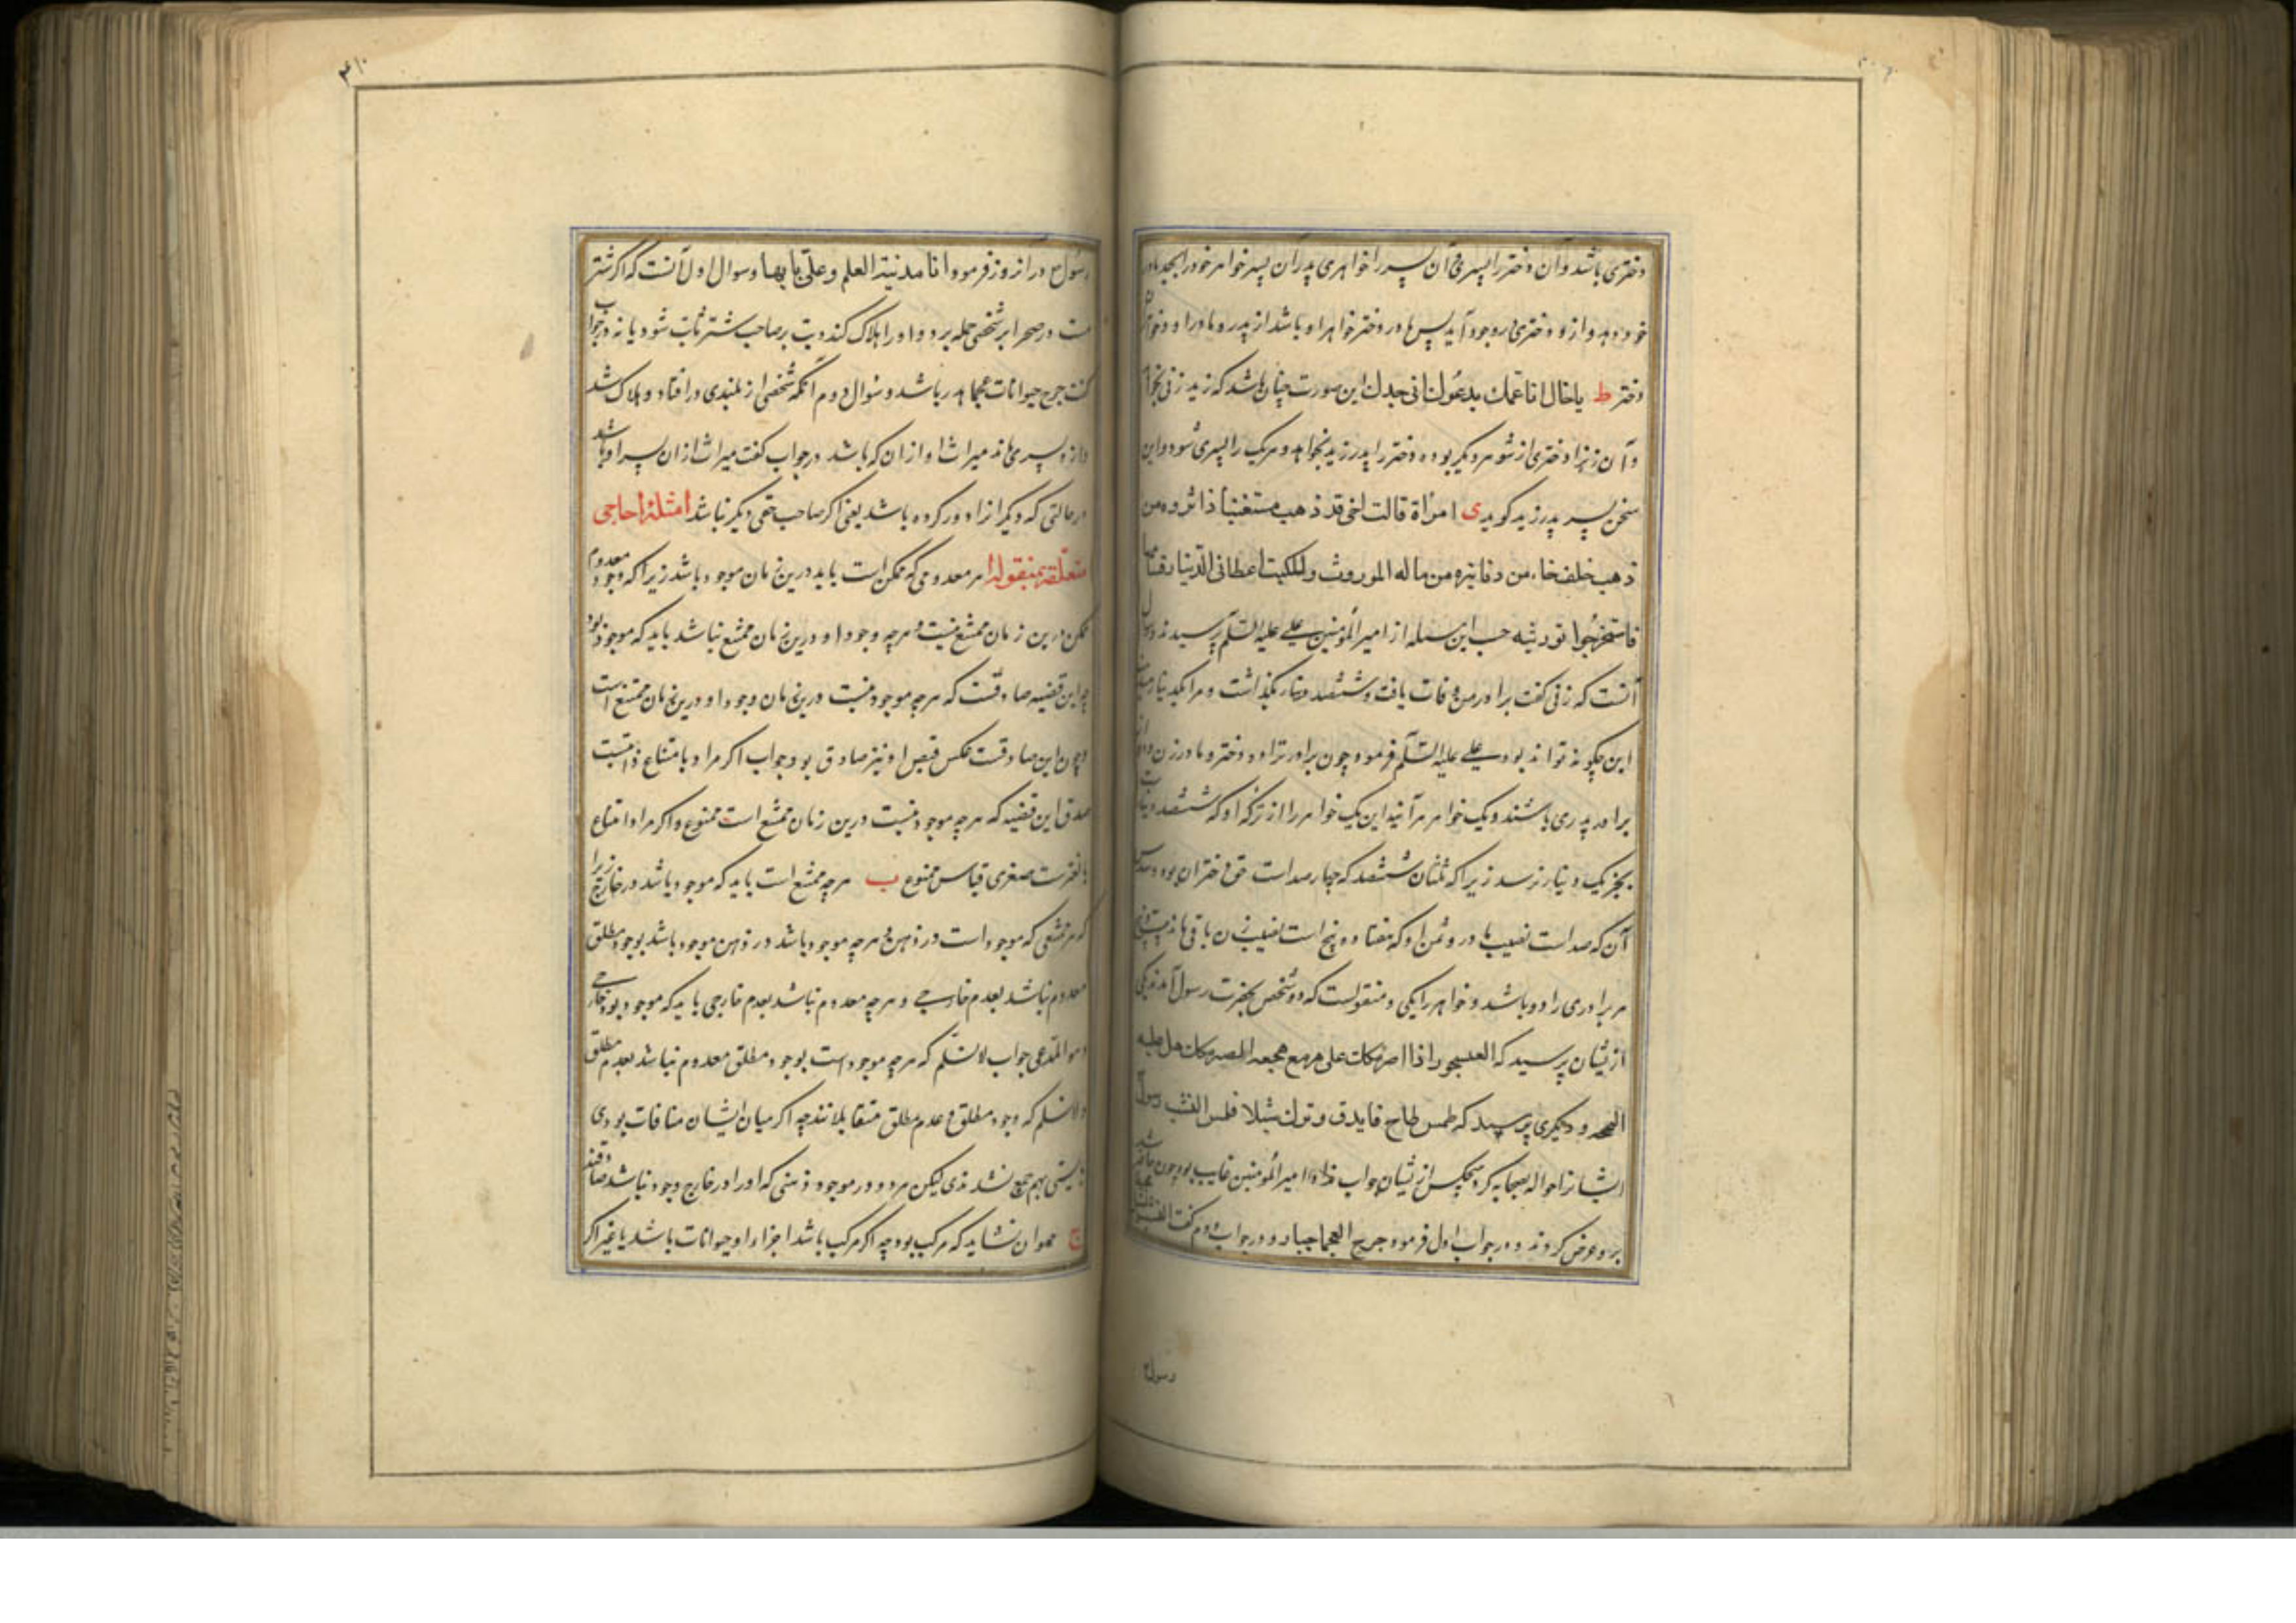 دختری باشد و آن دختر را پسری و آن پسر را خواهری پدر آن پسر خواهر خود را بجد مادر
خود دهد و ازو دختری بوجود آید پس مادر دختر خواهر او باشد از پدر و مادر او دختر
دختر ط یا خال انا عمك این صورت چنان باشد که زید زنی بخواهد
و آن زن را دختری از شوهر دیگر بوده دختر را پدر زید بخواهد و هر یک را پسری شود و این
سخن پسر پدر زید گوید ی امرأة قالت اخی قد ذهب مستغنیا ذا ثروه من
ذهب خلف من دنانیره من ماله الموروث اعطانی الدینار
فاستخرجوا توریثه این مسله از امیر المؤمنین علی علیه السلم پرسیدند و سوال
آنست که زنی گفت برادر من وفات یافت و ششصد دینار بگذاشت و مرا یکدینار
این چگونه تواند بود علی علیه السلم فرمود چون برادر ترا دو دختر و مادر و زن و دوازده
برادر پدری باشند و یک خواهر هر آینه این یک خواهر را از ترکه او که ششصد دینار است
بجز یک دینار نرسد زیرا که ثلثان ششصد که چهار صد است حق دختران بود و سدس
آن که صد است نصیب مادر و ثمن او که هفتاد و پنج است نصیب زن باقی ماند بیست و پنج
هر برادری را دو باشد و خواهر را یکی و منقولست که دو شخص بحضرت رسول آمدند یکی
ازیشان پرسید که
و دیگری پرسید که رسول
ایشانرا حواله بصحابه کرد هیچکس ازیشان جواب نداد امیر المؤمنین غایب بود چون حاضر شد
برو عرض کردند در جواب اول فرمود جرح العجما جبار و در جواب دوم گفت
رسول
۳۱۰
رسول در آن روز فرمود انا مدینة العلم و علی بابها و سوال اول آنست که اگر شتر
مست در صحرا بر شخصی حمله برد و او را هلاک کند دیت بر صاحب شتر ثابت شود یا نه در جواب
گفت جرح حیوانات عجما هدر باشد و سوال دوم آنکه شخصی از بلندی در افتاد و هلاک شد
و ازو پسری ماند میراث او از ان که باشد در جواب گفت میراث از ان پسر او باشد
در حالتی که دیگر از او دور کرده باشد یعنی اگر صاحب حقی دیگر نباشد امثلة احاجی
متعلقة بمنقول ا هر معدومی که ممکن است باید درین زمان موجود باشد زیرا که وجود معدوم
ممکن درین زمان ممتنع نیست و هرچه وجود او درین زمان ممتنع نباشد باید که موجود بود
چه این قضیه صادقست که هرچه موجود نیست درین زمان وجود او درین زمان ممتنع است
و چون این صادقست عکس نقیض او نیز صادق بود جواب اگر مراد بامتناع ذاتیست
صدق این قضیه که هرچه موجود نیست درین زمان ممتنع است ممنوع و اگر مراد امتناع
بالغیرست صغری قیاس ممنوع ب هرچه ممتنع است باید که موجود باشد در خارج زیرا
که هر ممتنعی که موجود است در ذهن و هرچه موجود باشد در ذهن موجود باشد بوجود مطلق
معدوم نباشد بعدم خارجی و هرچه معدوم نباشد بعدم خارجی باید که موجود بود خارجی
وهو المدعی جواب لا نسلم که هرچه موجود است بوجود مطلق معدوم نباشد بعدم مطلق
و لا نسلم که وجود مطلق و عدم مطلق متقابلانند چه اگر میان ایشان منافات بودی
بایستی بهم جمع نشدندی لیکن هر دو در موجود ذهنی که او را در خارج وجود نباشد صادقند
ج حیوان نشاید که مرکب بود چه اگر مرکب باشد اجزاء او حیوانات باشد یا غیر اگر